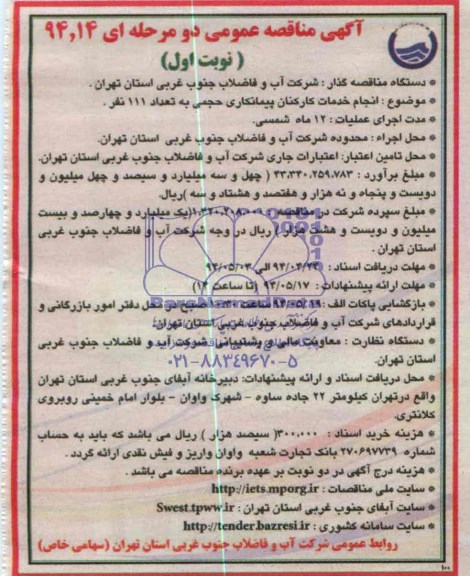 آگهی مناقصه عمومی دو مرحله ای ۹۴,۱۴
( نوبت اول )
* دستگاه مناقصه گذار : شرکت آب و فاضلاب جنوب غربی استان تهران .
* موضوع : انجام خدمات کارکنان پیمانکاری حجمی به تعداد ۱۱۱ نفر .
* مدت اجرای عملیات : ۱۲ ماه شمسی.
* محل اجراء : محدوده شرکت آب و فاضلاب جنوب غربی استان تهران.
* محل تامین اعتبار: اعتبارات جاری شرکت آب و فاضلاب جنوب غربی استان تهران.
* مبلغ برآورد : ۴۳,۳۴۰,۲۵۹,۷۸۳ ( چهل و سه میلیارد و سیصد و چهل میلیون و
دویست و پنجاه و نه هزار و هفتصد و هشتاد و سه )ریال.
* مبلغ سپرده شرکت در مناقصه (یک میلیارد و چهارصد و بیست
میلیون و دویست و هشت هزار ) ریال در وجه شرکت آب و فاضلاب جنوب غربی
استان تهران .
* مهلت دریافت اسناد : الی ۹۴/۰۵/۰۳
* مهلت ارائه پیشنهادات : ۹۴/۰۵/۱۷ (تا ساعت ۱۴)
* بازگشایی پاکات الف : ساعت صبح در محل دفتر امور بازرگانی و
قراردادهای شرکت آب و فاضلاب جنوب غربی استان تهران.
* دستگاه نظارت : معاونت مالی و پشتیبانی شرکت آب و فاضلاب جنوب غربی
استان تهران.
۰۲۱-۸۸۳۴۹۶۷۰-۵
* محل دریافت اسناد و ارائه پیشنهادات: دبیرخانه آبفای جنوب غربی استان تهران
واقع درتهران کیلومتر ۲۲ جاده ساوه - شهرک واوان - بلوار امام خمینی روبروی
کلانتری.
* هزینه خرید اسناد : ۳۰۰,۰۰۰( سیصد هزار ) ریال می باشد که باید به حساب
شماره ۲۷۰۶۹۷۷۳۹ بانک تجارت شعبه واوان واریز و فیش نقدی ارائه گردد .
* هزینه درج آگهی در دو نوبت بر عهده برنده مناقصه می باشد .
* سایت ملی مناقصات : http://iets.mporg.ir
* سایت آبفای جنوب غربی استان تهران : Swest.tpww.ir
* سایت سامانه کشوری : http://tender.bazresi.ir
روابط عمومی شرکت آب و فاضلاب جنوب غربی استان تهران (سهامی خاص)